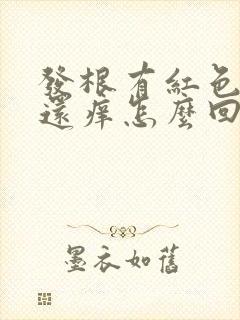 發根有紅色
還痒怎麼回
墨衣如舊